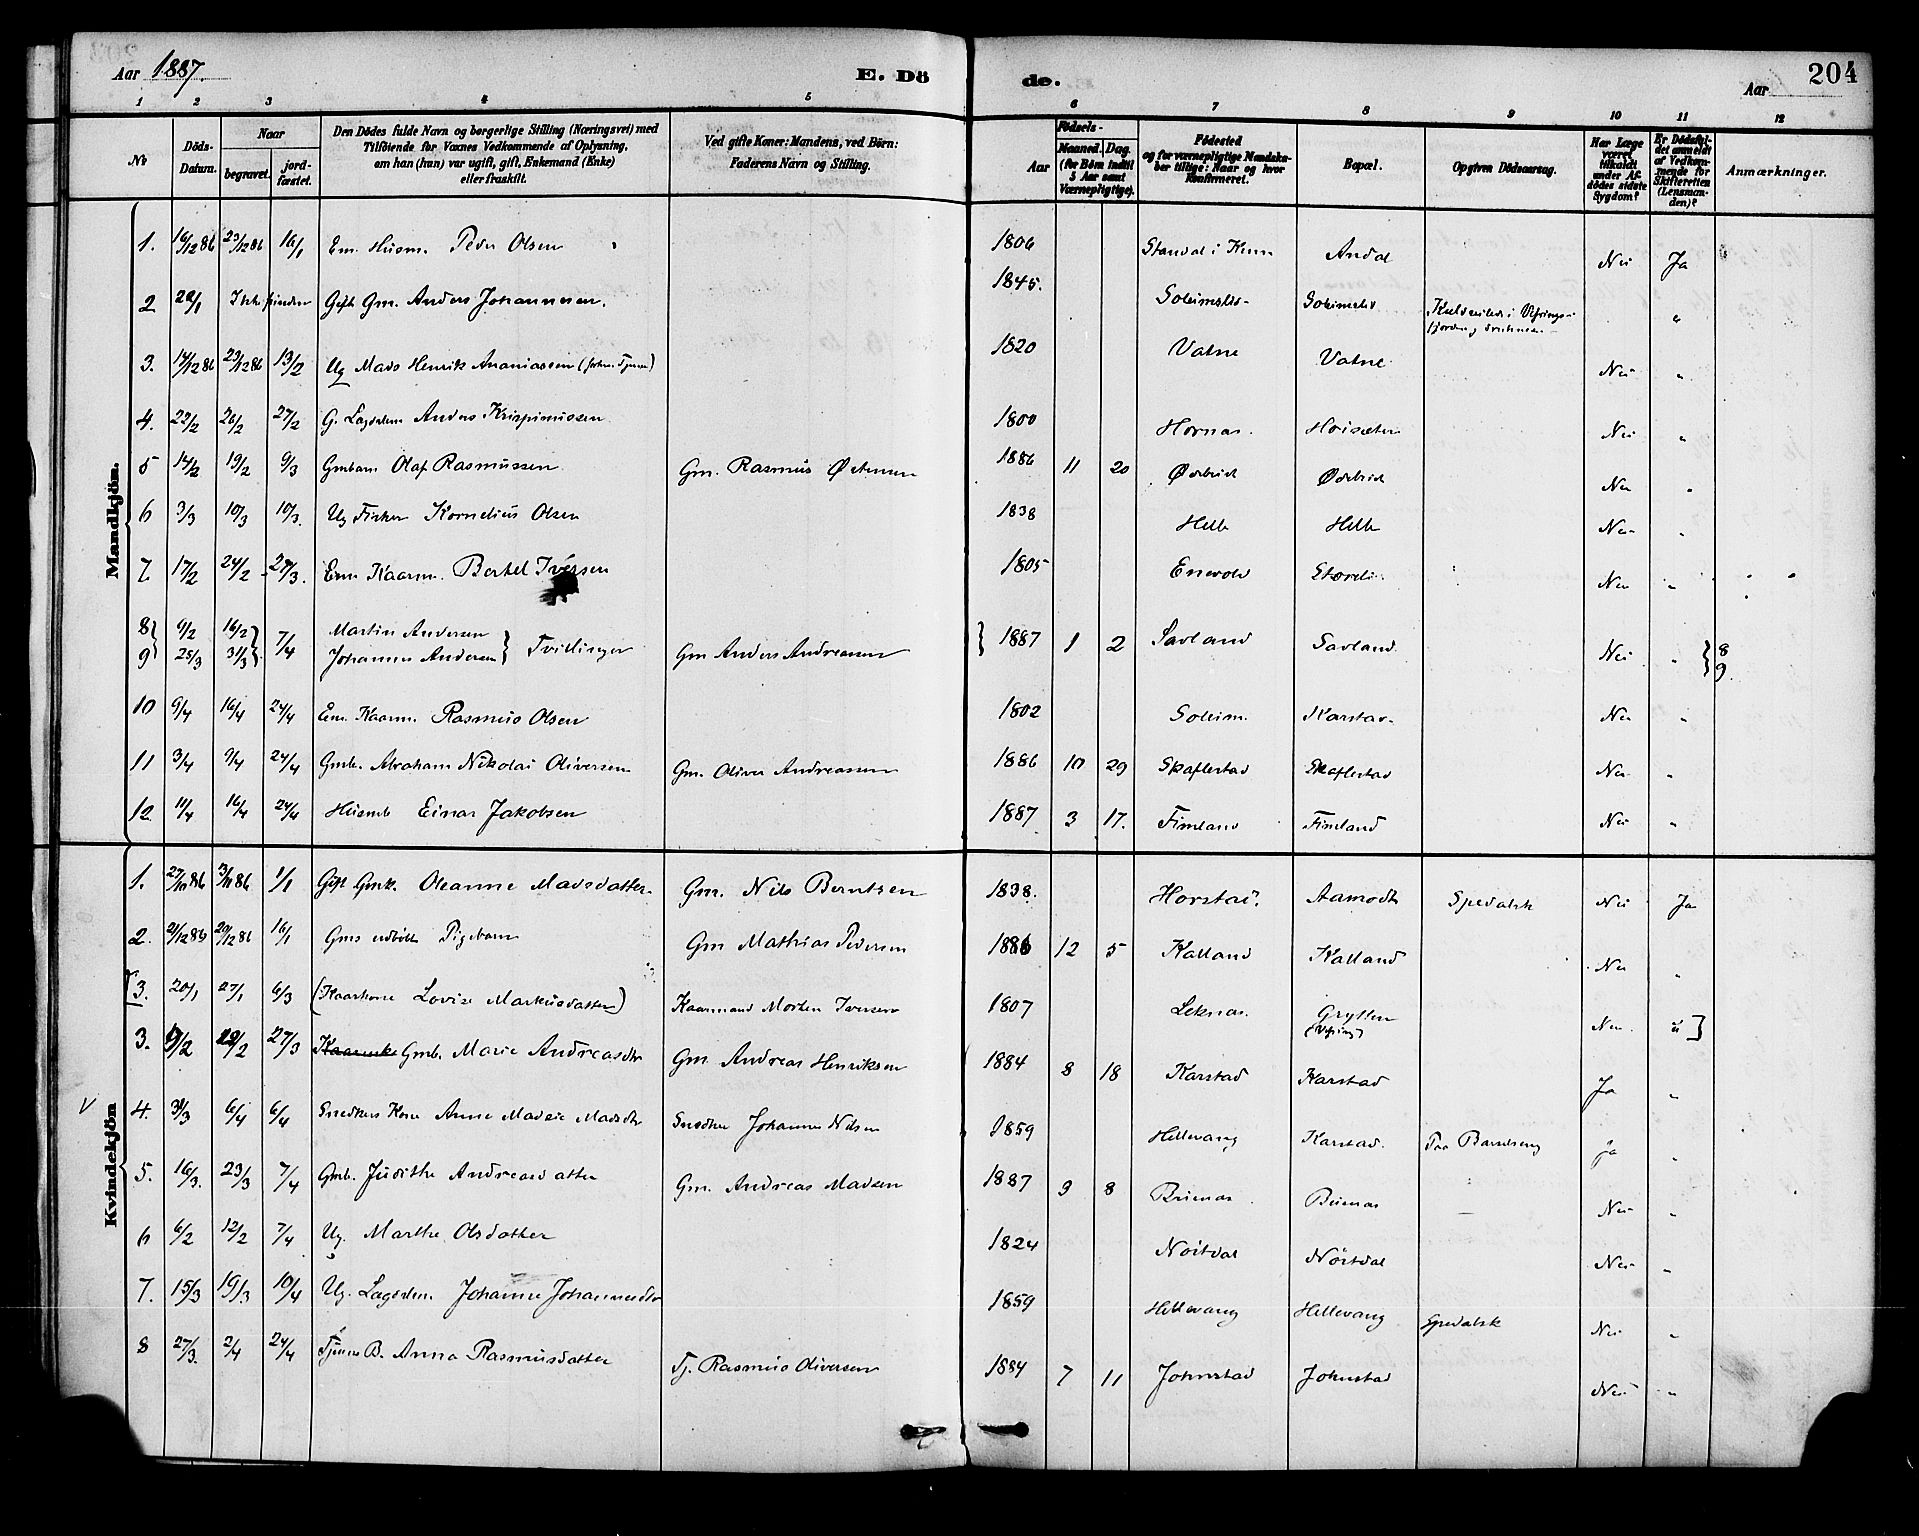 Aar 1887.
E. Döde.
Aar
204
1 2 3 4 5 6 7 8 9 10 11 12
No
Döds-Datum.
Naar
begravet.
jordfæstet.
Den Dödes fulde Navn og borgerlige Stilling (Næringsvei) med Tilföiende for Voxnes Vedkommende af Oplysning, om han (hun) var ugift, gift, Enkemand (Enke) eller fraskilt.
Ved gifte Koner: Mandens, ved Börn: Faderens Navn og Stilling.
Födsels-
Aar
Maaned. Dag.
(for Börn indtil 5 Aar samt Værnepligtige).
Födested og for værnepligtige Mandskaber tillige: Naar og hvor Konfirmeret.
Bopæl.
Opgiven Dödsaarsag.
Har Læge været tilkaldt under Afdödes sidste Sygdom?
Er Dödsfaldet anmeldt af Vedkommende for Skifteretten (Lensmanden)?
Anmærkninger.
Mandkjön.
1. 16/12 86 23/12 86 16/1 Em. Husm. Peder Olsen 1806 Standal i Andal Nei Ja
2 Gift Gm. Anders Johannesen. 1845. Soleimslid Soleimslid Kuldseilede i "
3. 14/12 86 23/12 86 13/2 Ug Mads Henrik Ananiassen 1820 Vatne Vatne Nei "
4. 22/2 26/2 27/2 G. Lægdslem Anders Krispinussen 1800 Hornæs. Høisæter Nei "
5 14/2 19/2 9/3 Gmbarn Olaf Rasmussen Gm. Rasmus 1886 11 20 Nei "
6 3/3 10/3 10/3. Ug Fisker Kornelius Olsen 1838 Helle Helle Nei "
7. 17/2 24/2 27/3. Em Kaarm. Bertel Iversen 1805 Nei "
8 9/2 16/2 7/4 Martin Andersen
9 25/3 31/3 Johannes Andersen Tvillinger Gm Anders Andreassen 1887 1 2 Savland Savland Nei " 8 9
10 9/4 16/4 24/4 Em. Kaarm. Rasmus Olsen 1802 Soleim. Karstad Nei "
11 3/4 9/4 24/4 Gmb. Abraham Nikolai Oliversen Gm. Oliver Andreassen 1886 10 29 Skaflestad Skaflestad Nei "
12. 11/4 16/4 24/4 Husmb Einar Jakobsen 1887 3 17. Fimland Fimland Nei "
Kvindekjön
1. Gift Gmk. Oleanne Madsdatter. Gm. Nils Berntsen 1838. Horstad. Aamodt Spedalsk Nei Ja
2. 21/12 86 29/12 86 16/1 Gms udöbt Pigebarn Gm Mathias Pedersen 1886 12 5 Kalland Kalland Nei "
3. 20/1 27/1 6/3 (Kaarkone Lovise Markusdatter) Kaarmand Morten Iversen 1807 Leknæs. Gryllen Nei "
3. 27/3 Gmb. Marie Andreasdtr Gm. Andreas Henriksen 1884 8 18 Karstad Karstad Ja "
V 4. 31/3 6/4 6/4 Snedkers Kone Anne Madsdtr Snedker Johannes Nilsen 1859 Hellevang Karstad. Paa Barselseng Ja "
5. 16/3. 23/3 7/4 Gmb. Judithe Andreasdatter Gm. Andreas Madsen 1887 3 8 Brunæs Brunæs Nei "
6 6/2 12/2 7/4 Ug. Marthe Olsdatter 1824 Nøstdal Nøstdal Nei "
7. 15/3 19/3 10/4 Ug. Lægdslem Johanne Johannesdtr 1859 Hellevang Hellevang Spedalsk Nei "
8 27/3. 2/4 24/4 B. Anna Rasmusdatter Tj. Rasmus Oliversen 1884 7 11 Johnstad Johnstad Nei "